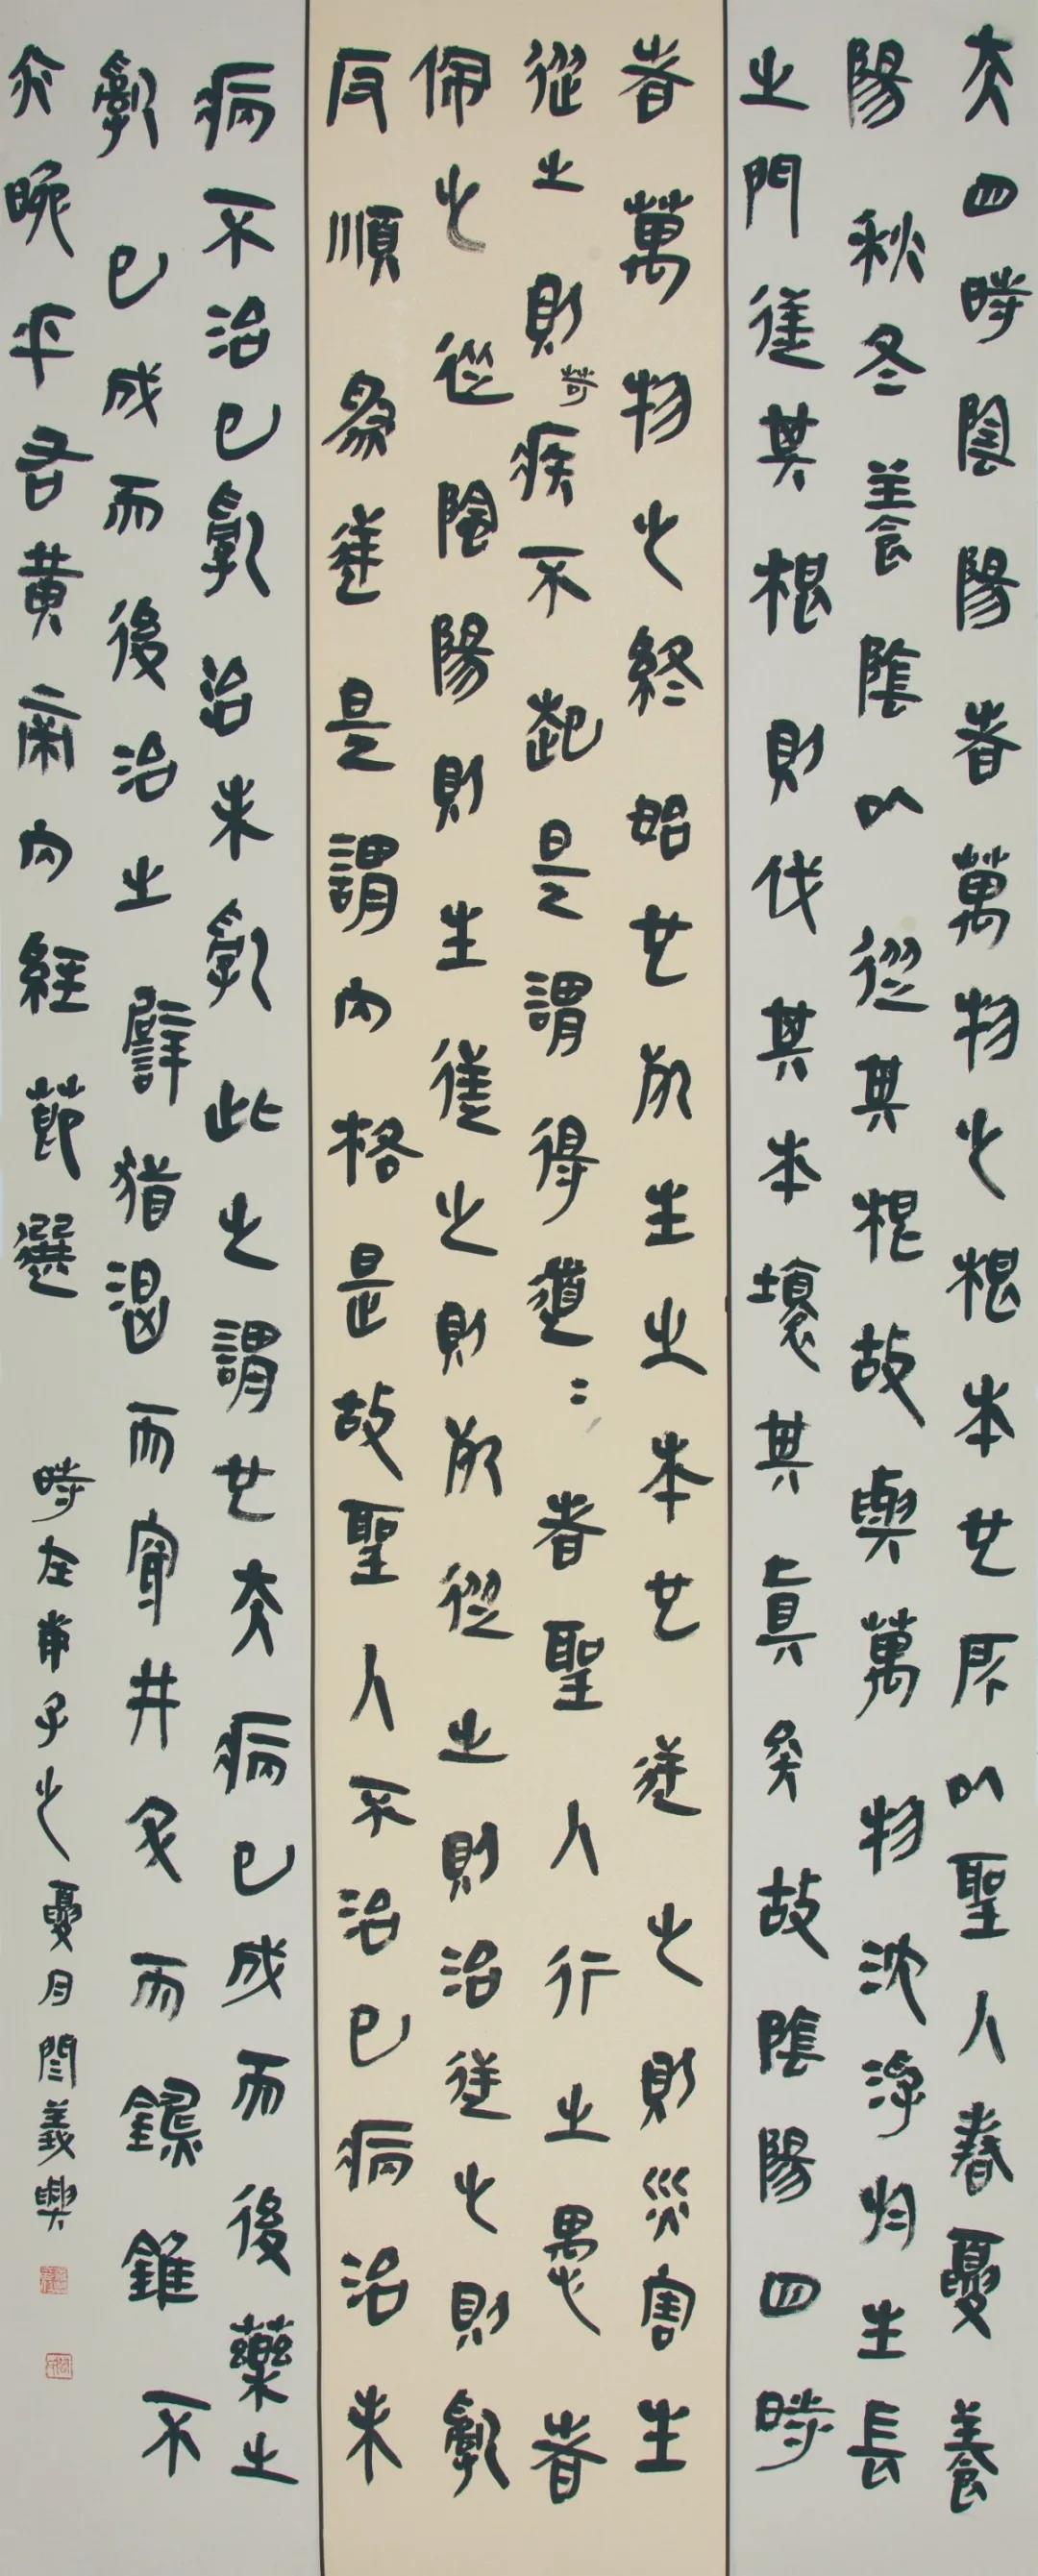 夫四時陰陽者萬物之根本也所以聖人春夏養
陽秋冬養陰以從其根故與萬物沈浮於生長
之門逆其根則伐其本壞其真矣故陰陽四時
者萬物之終始也死生之本也逆之則災害生
從之則苛疾不起是謂得道〻者聖人行之愚者
佩之從陰陽則生逆之則死從之則治逆之則亂
反順為逆是謂內格是故聖人不治已病治未
病不治已亂治未亂此之謂也夫病已成而後藥之
亂已成而後治之譬猶渴而穿井而鑄錐不
亦晚乎 黃帝內經節選
時在甲子之夏月閆義興